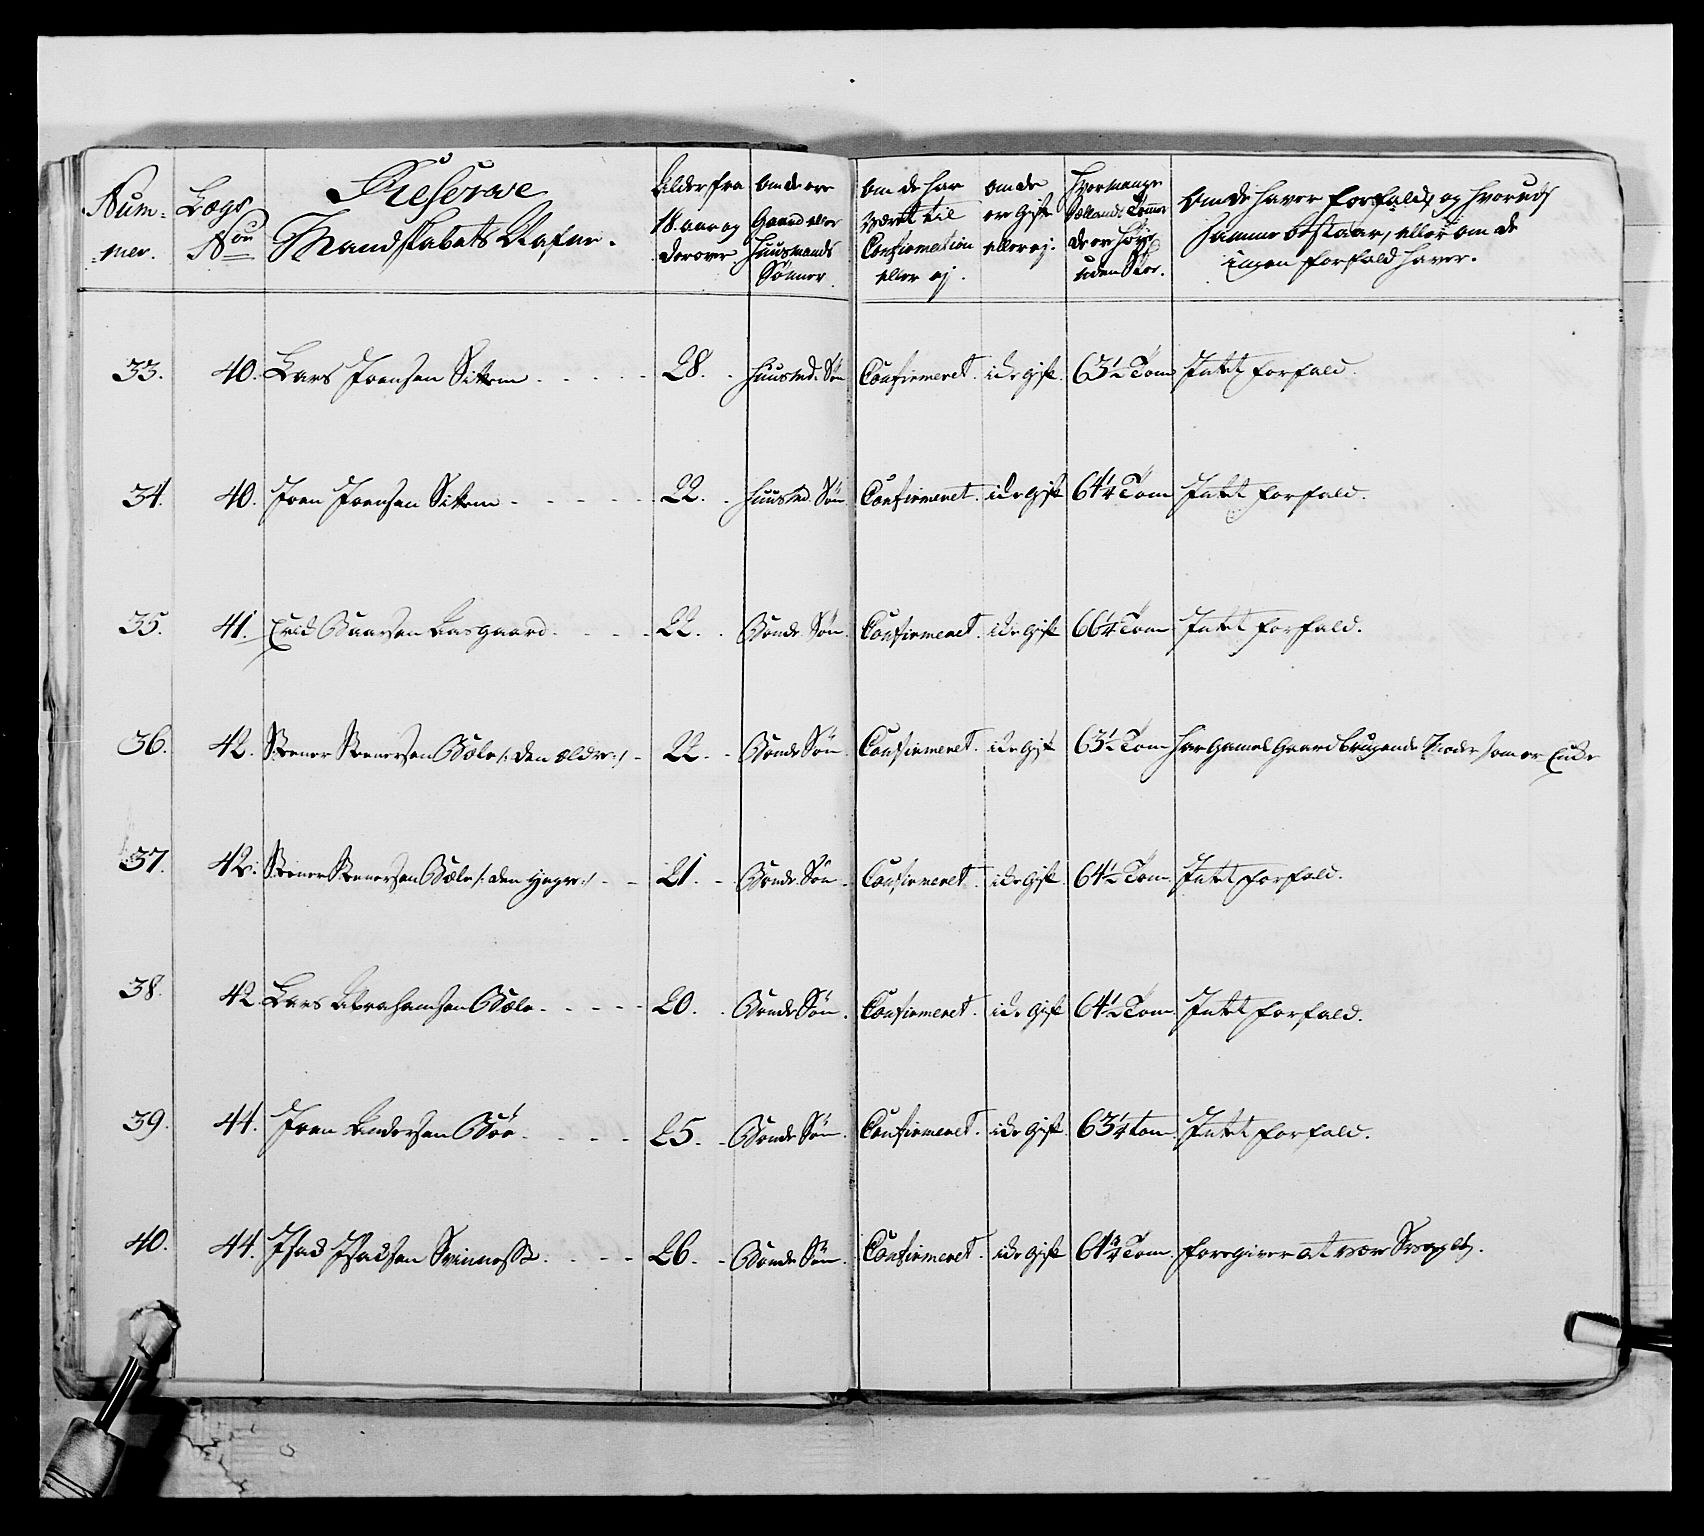 Num-
mer.
Lægs
No
Reserve
Mandskabets Nafne.
Alder fra
18 aar og
derover.
Om de ere
Gaard eller
Huusmands
Sønner.
Om de har
været til
Confirmation
eller ej.
Om de
er Gift
eller ej.
Hvormange
Sællands Tommer
de er høye
uden Skoe.
Om de haver Forfald, og hvorudj
samme bestaar, eller om de
ingen Forfald haver.
33. 40. Lars Joensen 28. Huusmd. Søn Confirmeret. icke Gift. 63½ Tom Intet Forfald.
34. 40. Joen Joensen 22. Huusmd. Søn Confirmeret. icke Gift 64¼ Tom Intet Forfald.
35. 41. Erick Aasgaard. 22. Bonde Søn. Confirmeret. icke Gift 66¼ Tom Intet Forfald.
36. 42. Steener Steenersen Bæle /: den ældre :/ 22. Bonde Søn. Confirmeret. icke Gift 63½ Tom har gamel Gaard brugende Moder som er Enke
37. 42. Steener Steenersen Bæle /: den yngre :/ 21. Bonde Søn Confirmeret. icke Gift 64½ Tom Intet Forfald.
38. 42 Lars Abrahamsen Bæle. 20. Bonde Søn. Confirmeret. icke Gift 64½ Tom. Intet Forfald.
39. 44. Joen Andersen Bøe. 25. Bonde Søn. Confirmeret. icke Gift. 63¼ tom. Intet Forfald.
40. 44. Isac Isacsen 26. Bonde Søn. Confirmeret. icke Gift 64¾ Tom. foregiver at være Svagelig.